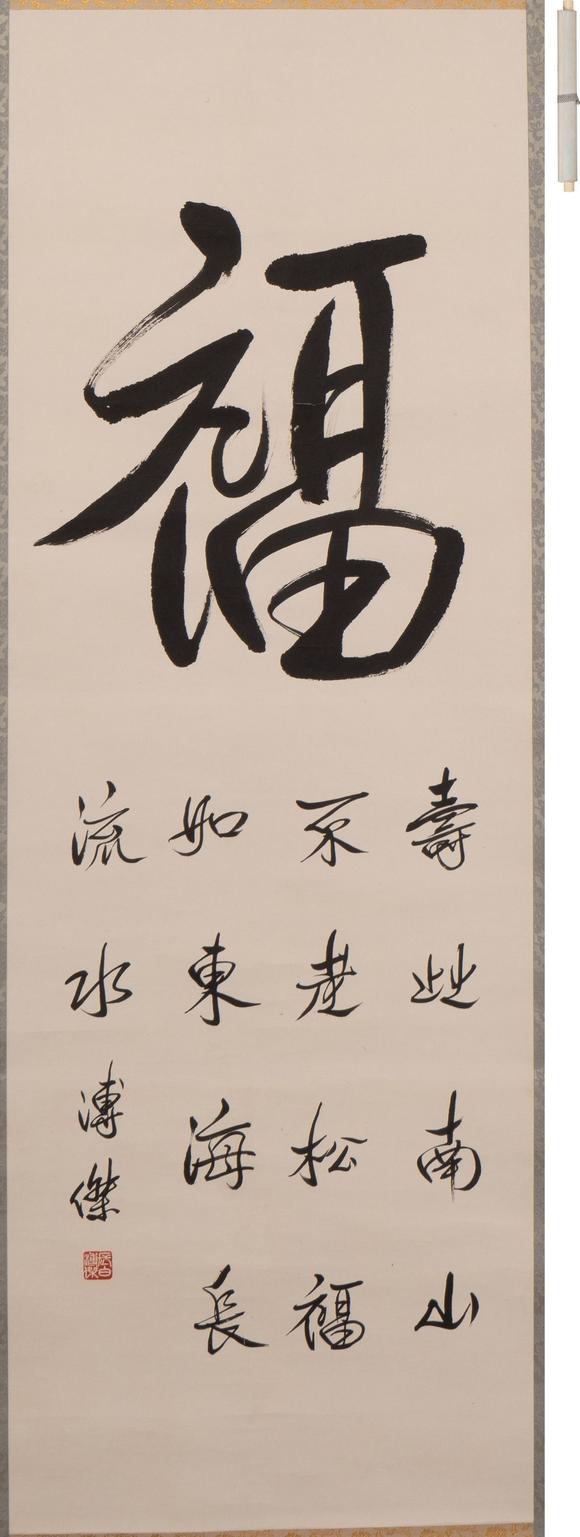 福
壽比南山
不老松福
如東海長
流水
溥傑